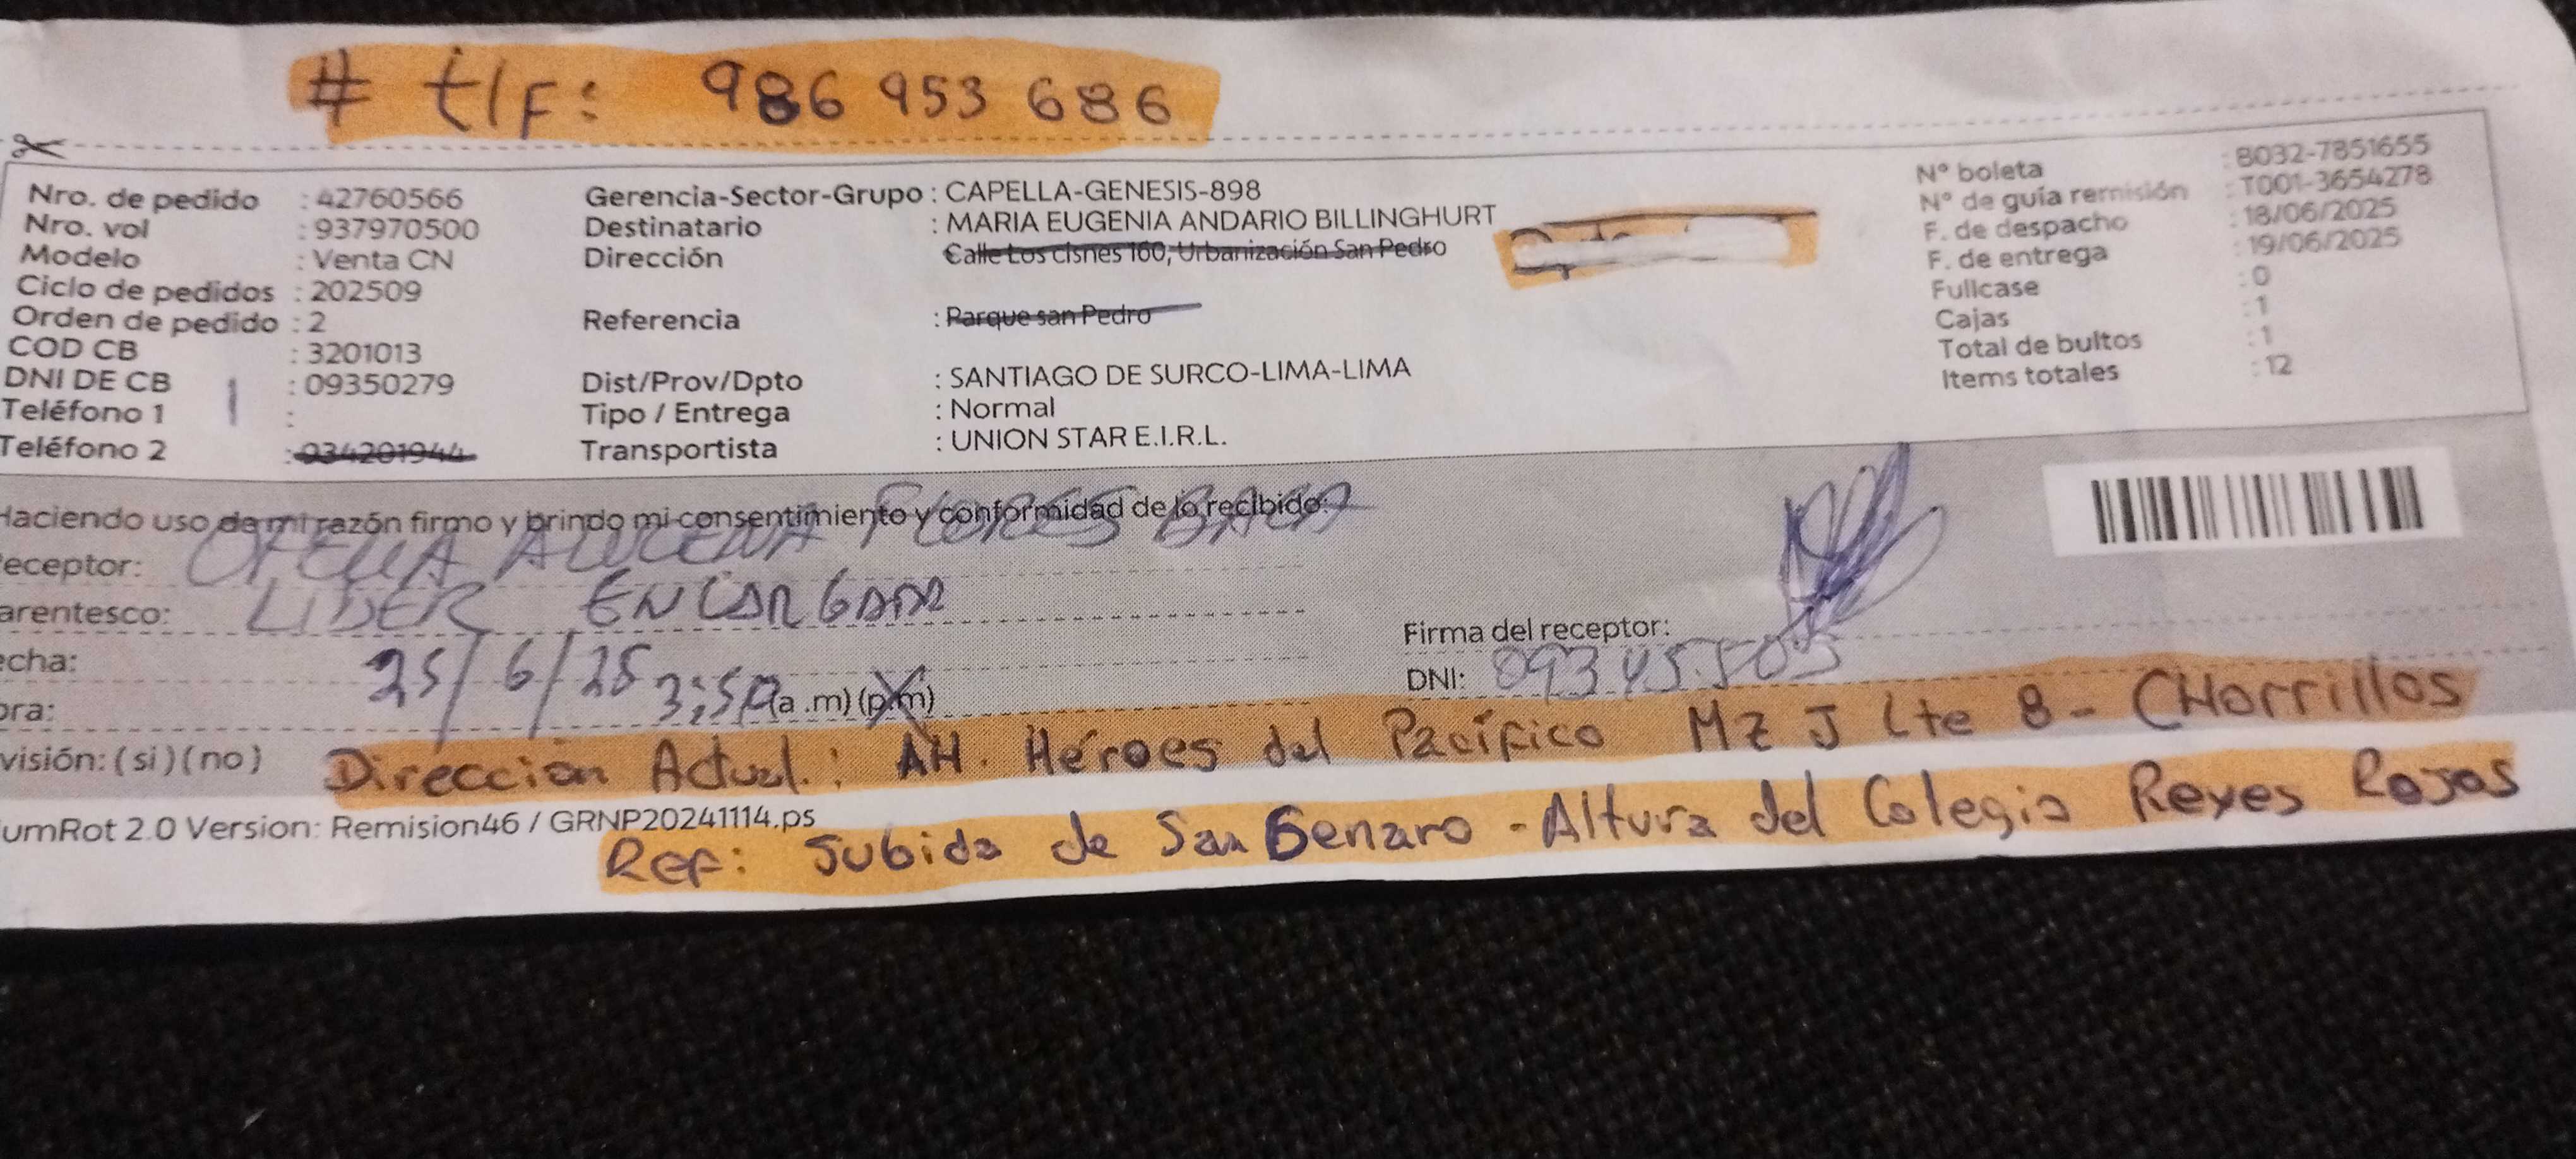 # tlf: 986 953 686
Nro. de pedido : 42760566
Nro. vol : 937970500
Modelo : Venta CN
Ciclo de pedidos : 202509
Orden de pedido : 2
COD CB : 3201013
DNI DE CB : 09350279
Teléfono 1 :
Teléfono 2 : 934201944
Gerencia-Sector-Grupo : CAPELLA-GENESIS-898
Destinatario : MARIA EUGENIA ANDARIO BILLINGHURT
Dirección Calle Los cisnes 160, Urbanización San Pedro
Referencia : Parque san Pedro
Dist/Prov/Dpto : SANTIAGO DE SURCO-LIMA-LIMA
Tipo / Entrega : Normal
Transportista : UNION STAR E.I.R.L.
N° boleta : B032-7851655
N° de guía remisión : T001-3654278
F. de despacho : 18/06/2025
F. de entrega : 19/06/2025
Fullcase : 0
Cajas : 1
Total de bultos : 1
Items totales : 12
Haciendo uso de mi razón firmo y brindo mi consentimiento y conformidad de lo recibido:
eceptor: OFELIA AZUCENA FLORES
arentesco: LIDER ENCARGADA
echa: 25/6/25
ora: 3:50 (a .m) (p.m)
Firma del receptor:
DNI: 09345505
visión: ( si ) ( no )
Dirección Actual.: AH. Héroes del Pacífico MZ J Lte 8 - CHorrillos
umRot 2.0 Version: Remision46 / GRNP20241114.ps
Ref: Subida de San Genaro - Altura del Colegio Reyes Rojas